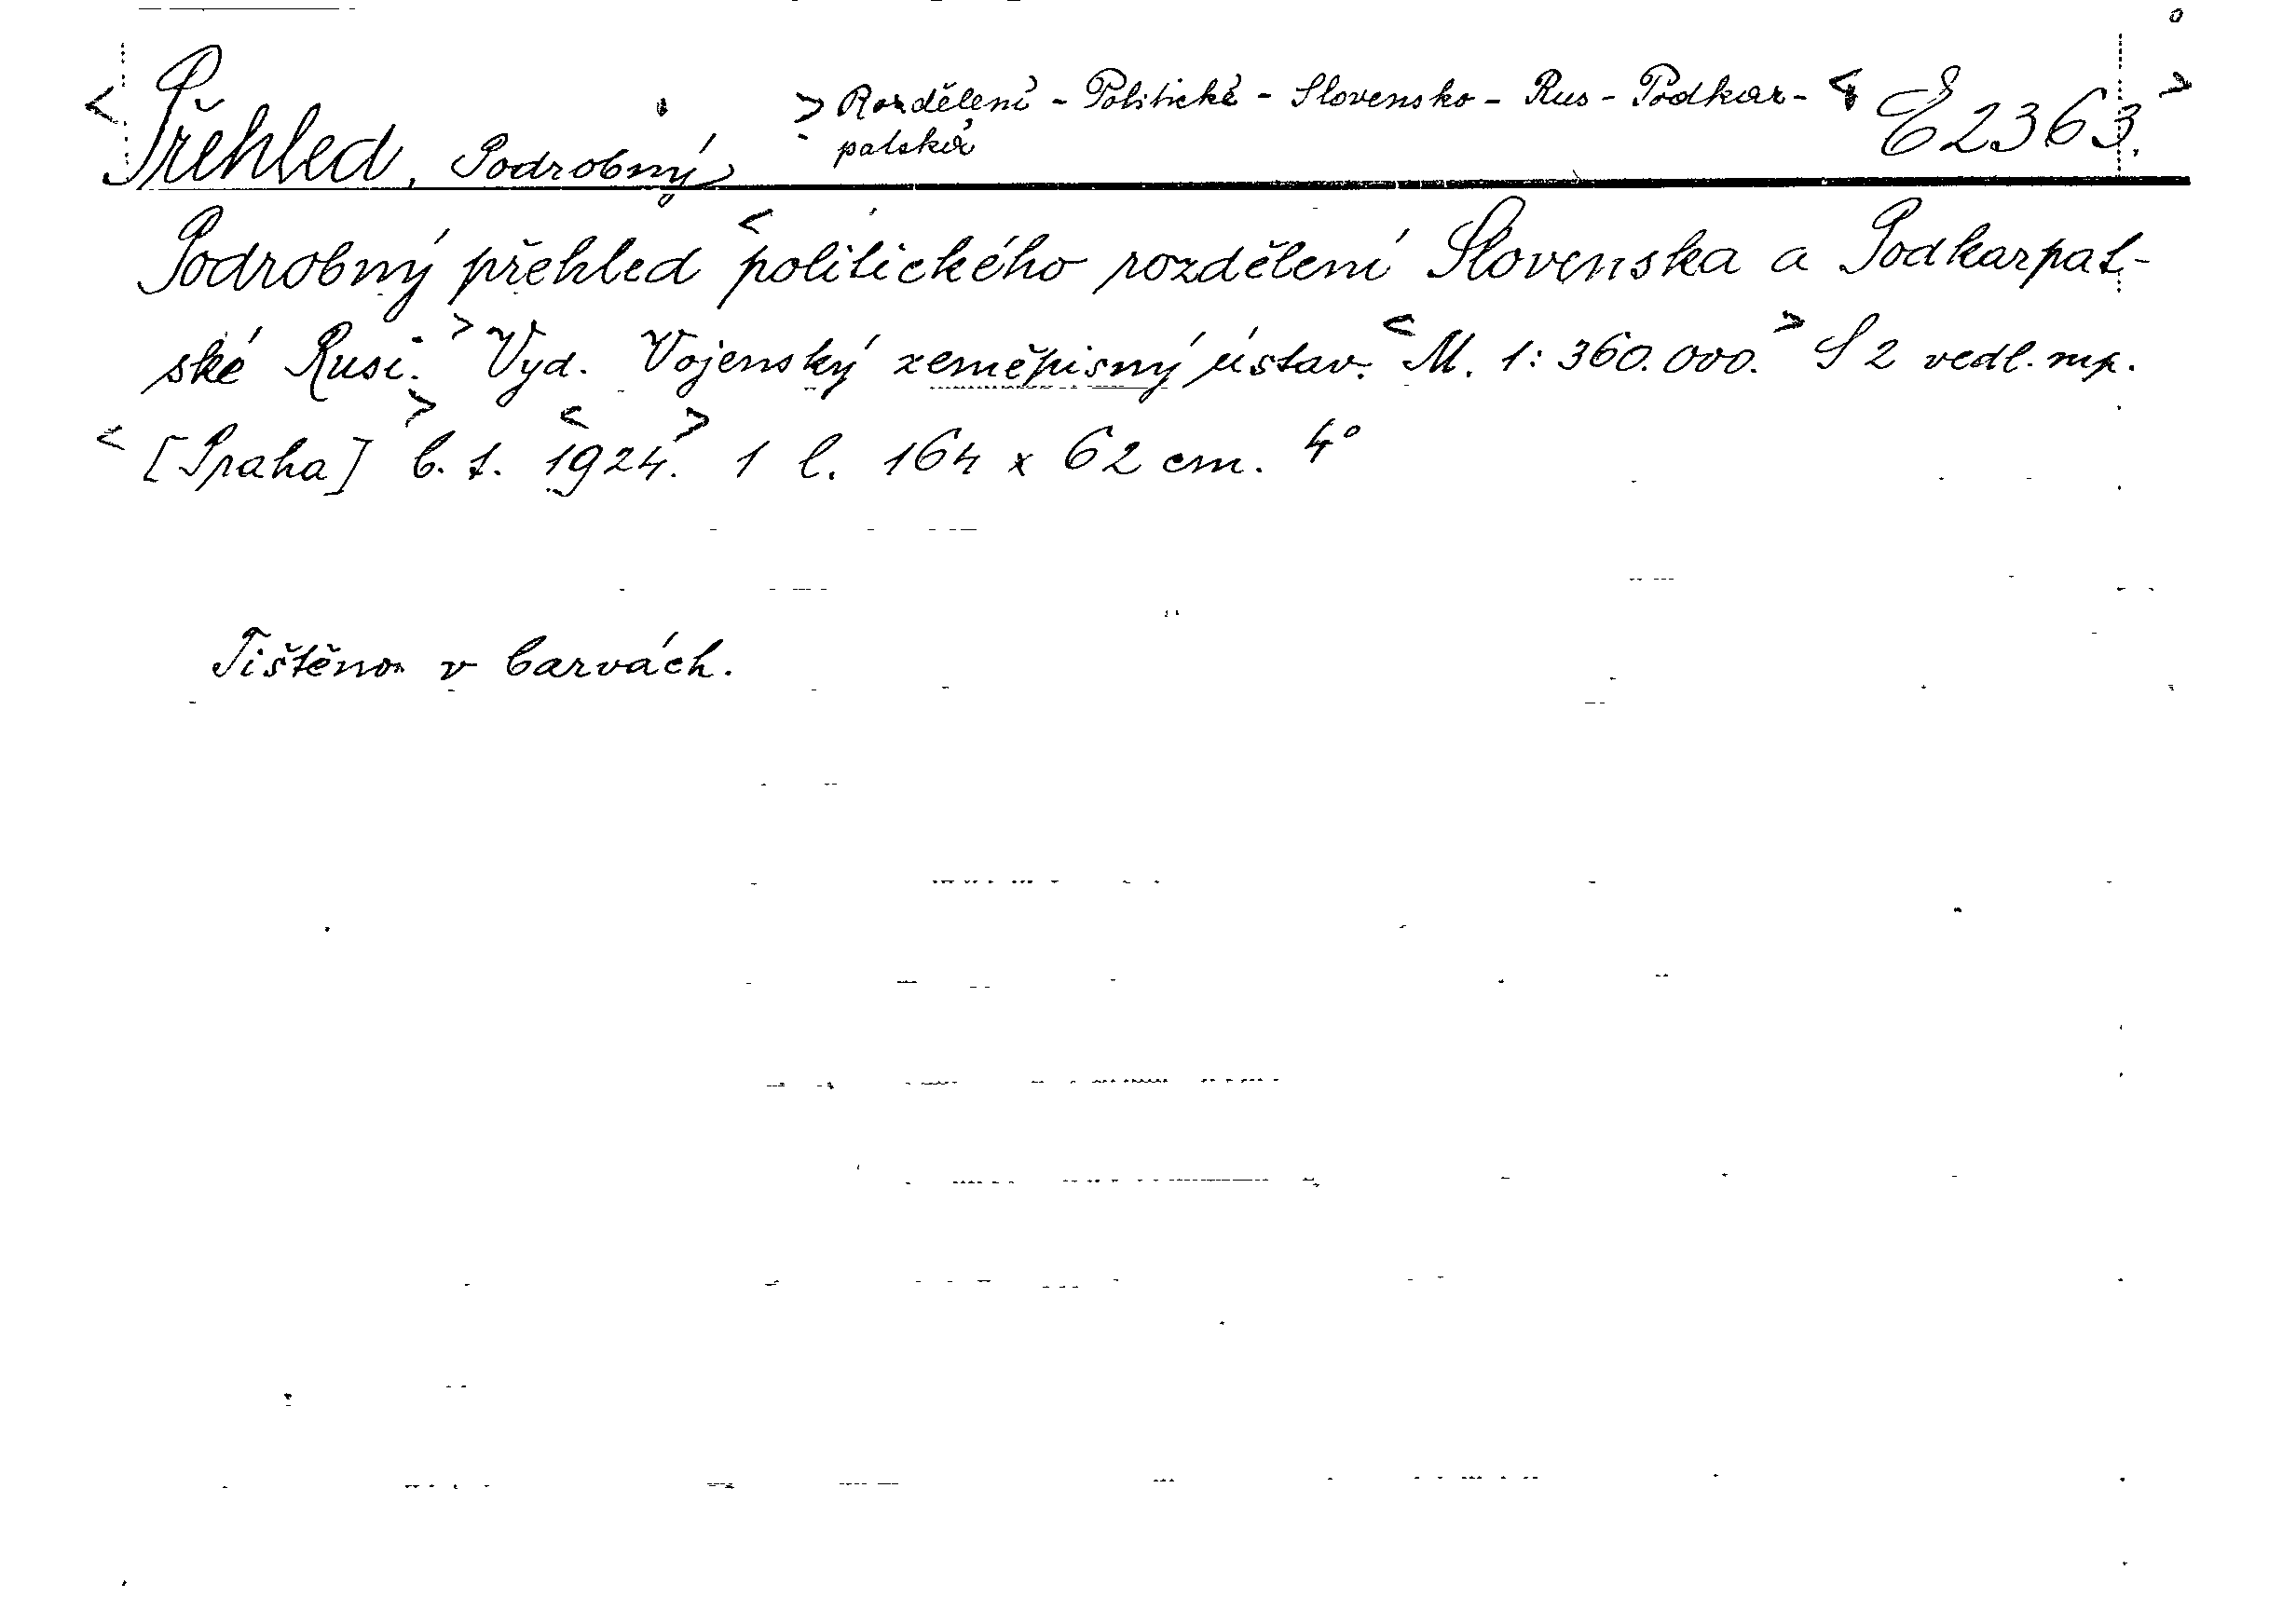 <Přehled, Podrobný > Rozdělení - Politické - Slovensko - Rus - Podkar- < E 2363. >
patská
Podrobný přehled <politického rozdělení Slovenska a Podkarpat-
ské Rusi.> Vyd. Vojenský zeměpisný ústav. <M. 1: 360.000.> S 2 vedl. mp.
<[Praha]> b. t. <1924.> 1 l. 164 x 62 cm. 4°
Tištěno v barvách.